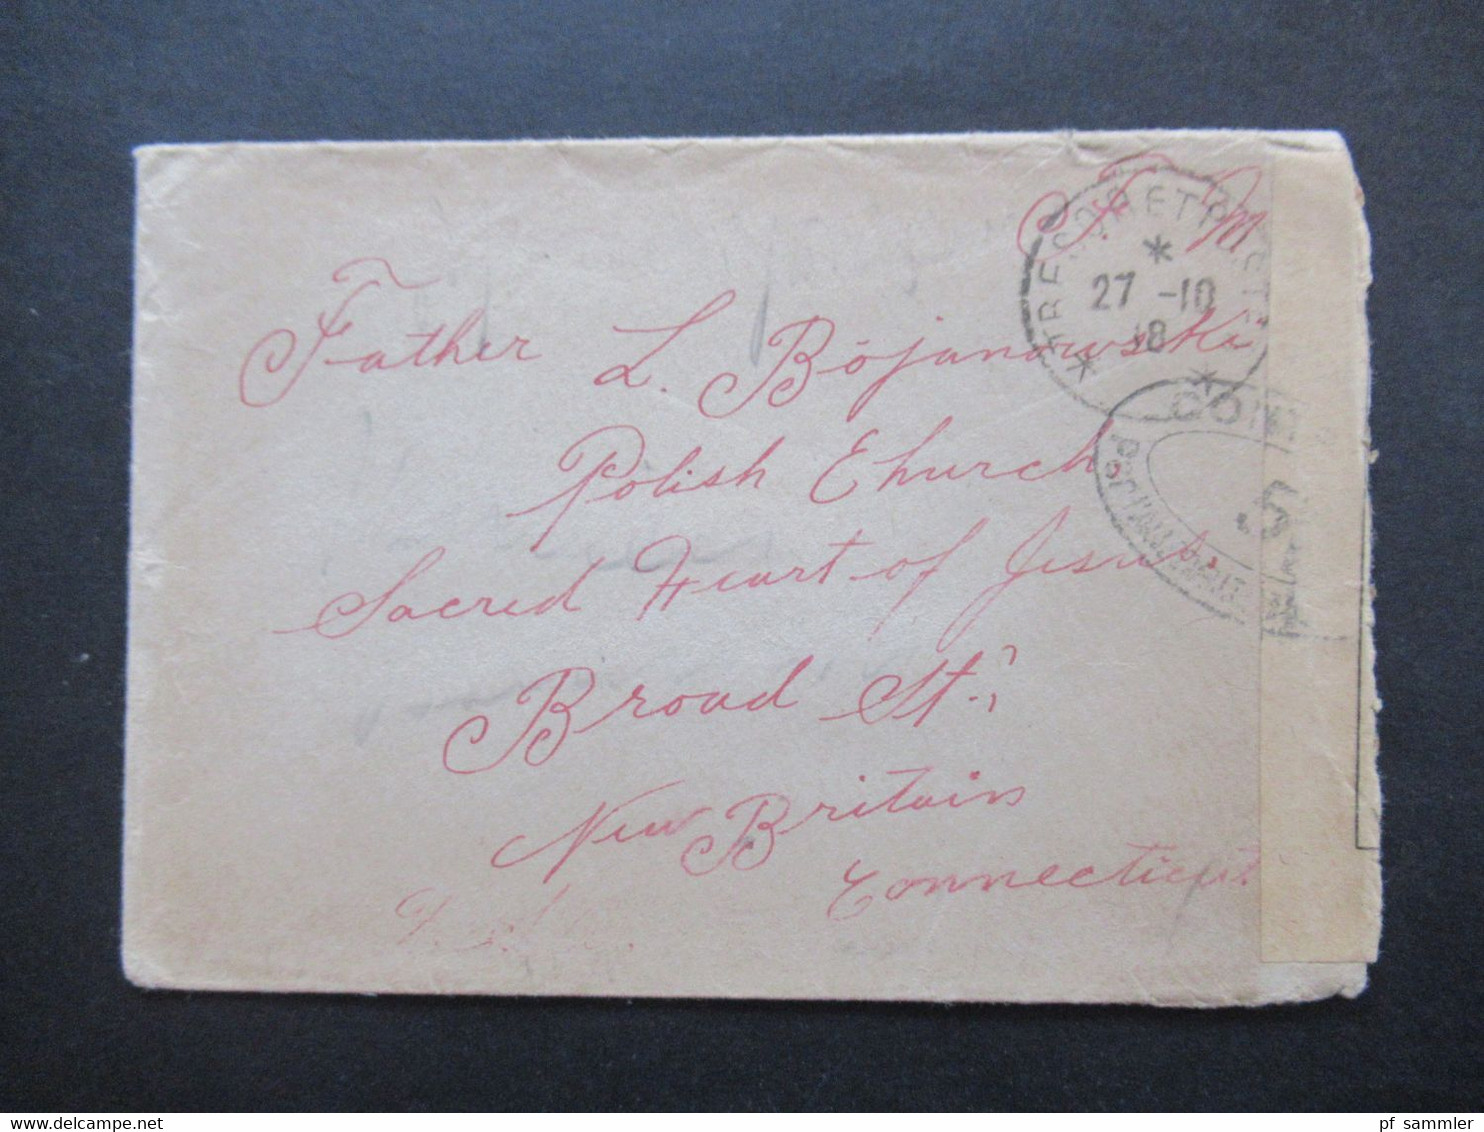 F. M
TRESOR ET POSTES
27 -10
18
Father L. Bojanowski
Polish Church,
Sacred Heart of Jesus
Broad St.,
New Britain
Connecticut
PAR L'AUTORITÉ
pf_sammler